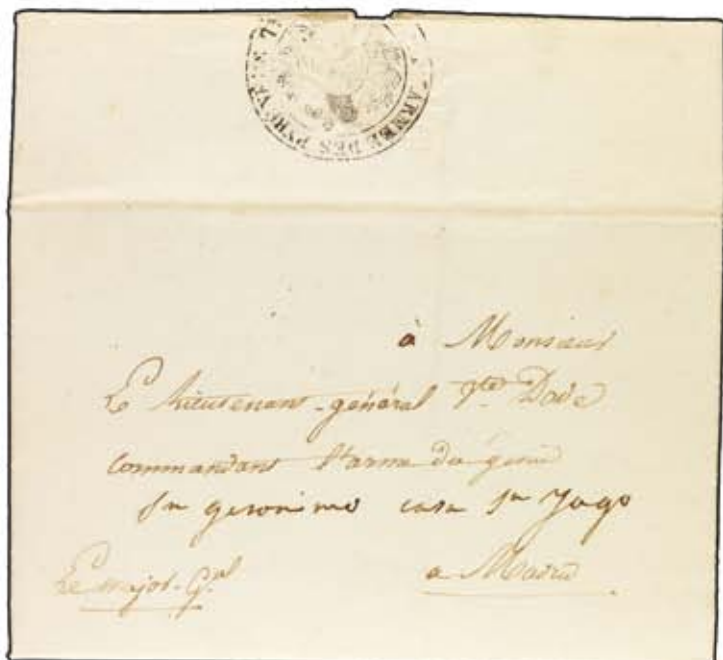 ARMEE DES PYRENEES
à Monsieur
Le lieutenant-général Vte Dode
commandant l'arme du génie
Sn geronimo casa Sn Yago
Le major-Gal
a Madrid